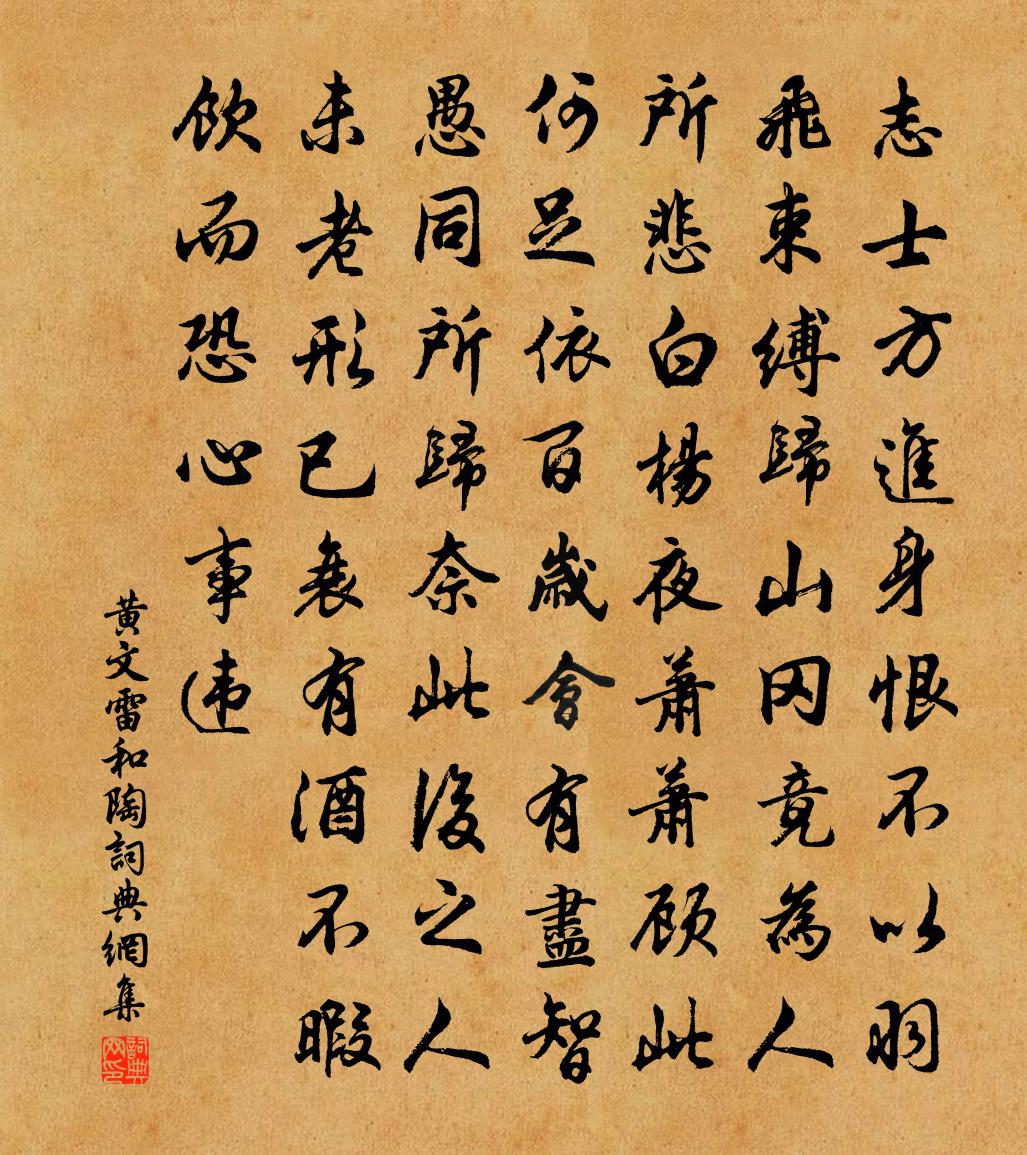 志士方進身恨不以羽
飛束縛歸山冈竟為人
所悲白楊夜蕭蕭顾此
何足依百歲會有盡智
愚同所歸奈此後之人
未老形已衰有酒不暇
飲而恐心事违
黄文雷和陶詞典網集
詞典网印